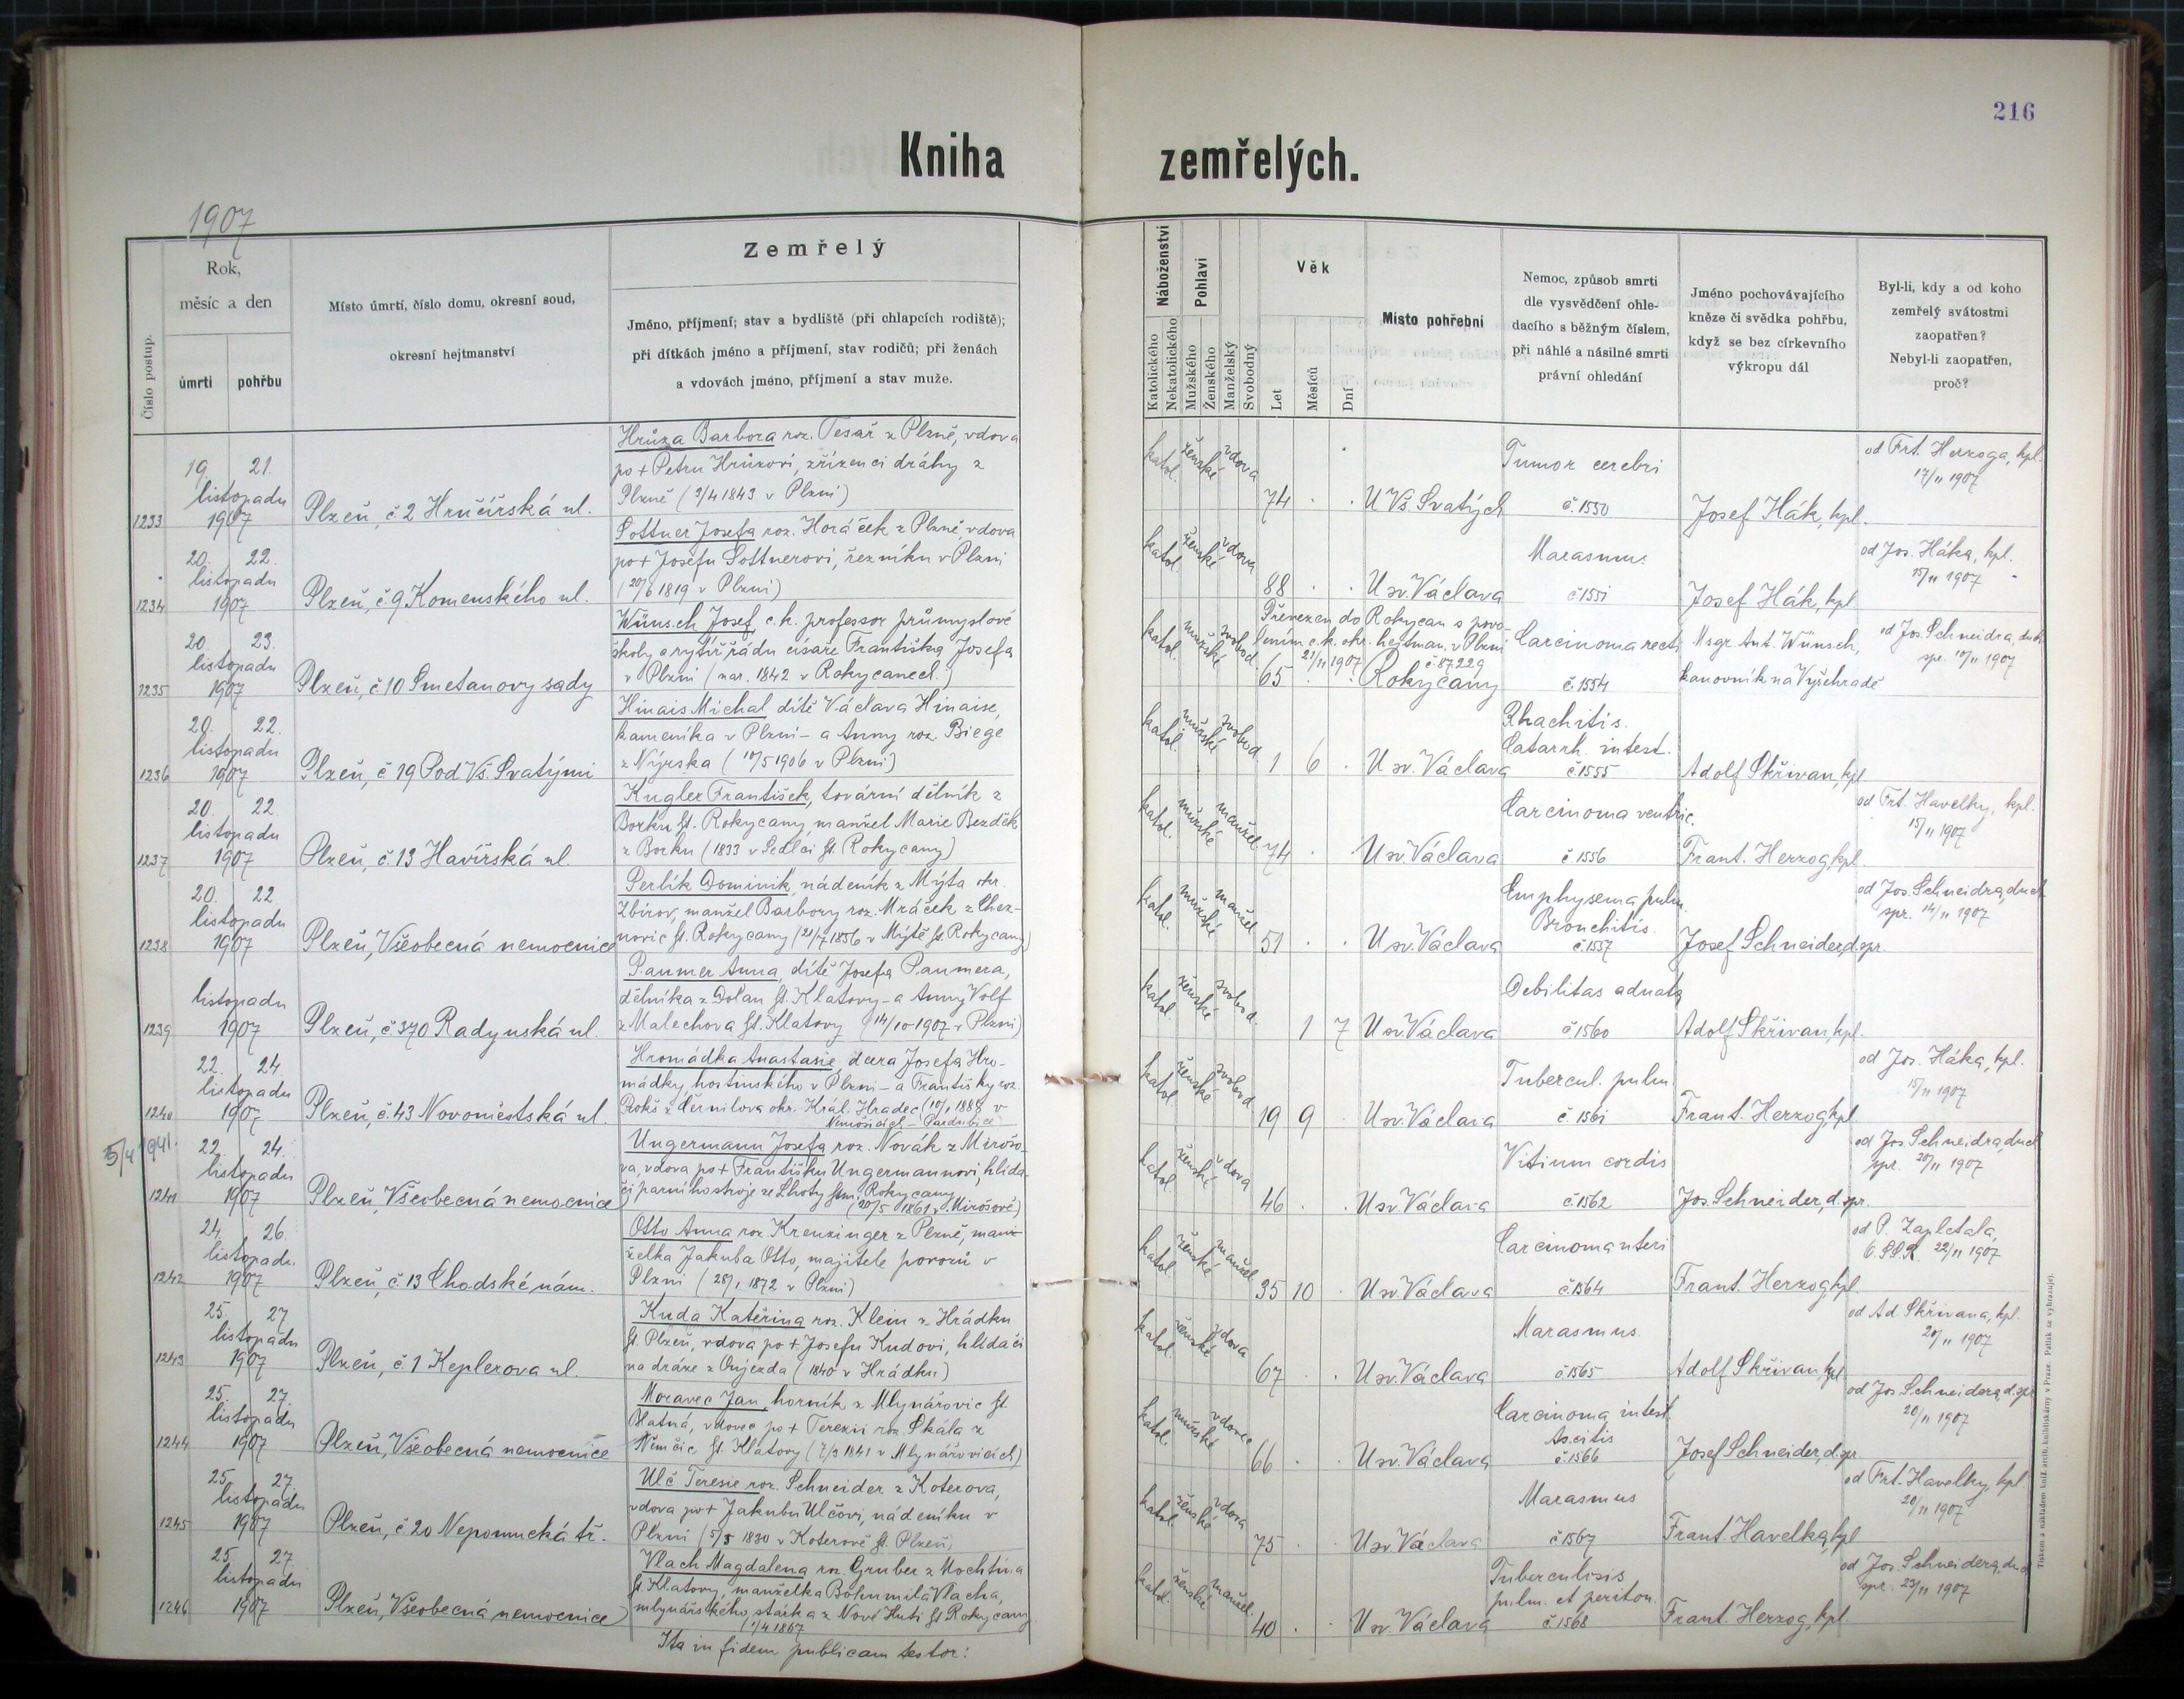 216
Kniha zemřelých.
1907
Číslo postup.
Rok,
měsíc a den
úmrtí
pohřbu
Místo úmrtí, číslo domu, okresní soud,
okresní hejtmanství
Zemřelý
Jméno, příjmení; stav a bydliště (při chlapcích rodiště);
při dítkách jméno a příjmení, stav rodičů; při ženách
a vdovách jméno, příjmení a stav muže.
Náboženství
Katolického
Nekatolického
Pohlaví
Mužského
Ženského
Manželský
Svobodný
Věk
Let
Měsíců
Dní
Místo pohřební
Nemoc, způsob smrti
dle vysvědčení ohle-
dacího s běžným číslem,
při náhlé a násilné smrti
právní ohledání
Jméno pochovávajícího
kněze či svědka pohřbu,
když se bez církevního
výkropu dál
Byl-li, kdy a od koho
zemřelý svátostmi
zaopatřen?
Nebyl-li zaopatřen,
proč?
1233
19. 21.
listopadu
1907
Plzeň, č 2 Hrnčířská ul.
Hrůza Barbora roz. Tesař z Plzně, vdova
po + Petru Hrůzovi, zřízenci dráhy z
Plzně (3/4 1843 v Plzni)
katol. ženské vdova
74
U Vš. Svatých
Tumor cerebri
č. 1550
Josef Hák, kpl.
od Frt. Herzoga, kpl.
17/11 1907
1234
20. 22.
listopadu
1907
Plzeň, č. 9 Komenského ul.
Sottner Josefa roz. Horáček z Plzně, vdova
po + Josefu Sottnerovi, řezníku v Plzni
(20/6 1819 v Plzni)
katol. ženské vdova
88
U sv. Václava
Marasmus
č 1551
Josef Hák, kpl
od Jos. Háka, kpl.
15/11 1907
1235
20. 23.
listopadu
1907
Plzeň, č 10 Smetanovy sady
Wünsch Josef c. k. professor průmyslové
školy a rytíř řádu císaře Františka Josefa
v Plzni (nar. 1842 v Rokycanech)
katol. mužské svobod.
65
Převezen do Rokycan s povo-
lením c. k. okr. hejtman. v Plzni
21/11 1907 č 87.229
Rokycany
Carcinoma recti
č. 1554
Msgr. Ant. Wünsch,
kanovník na Vyšehradě
od Jos. Schneidra, duch.
spr. 10/11 1907
1236
20. 22.
listopadu
1907
Plzeň, č 19 Pod Vš. Svatými
Hinais Michal dítě Václava Hinaise,
kameníka v Plzni - a Anny roz. Biege
z Nýrska (10/5 1906 v Plzni)
katol. mužské svobod.
1 6
U sv. Václava
Rhachitis.
Catarrh. intest.
č 1555
Adolf Skřivan, kpl
1237
20. 22.
listopadu
1907
Plzeň, č. 13 Havířská ul.
Kugler František, tovární dělník z
Borku ht. Rokycany, manžel Marie Bezděk
z Borku (1833 v Sedlci ht. Rokycany)
katol. mužské manžel.
74
U sv. Václava
Carcinoma ventric.
č. 1556
Frant. Herzog, kpl
od Frt. Havelky, kpl.
15/11 1907
1238
20. 22
listopadu
1907
Plzeň, Všeobecná nemocnice
Perlík Dominik, nádeník z Mýta okr.
Zbirov, manžel Barbory roz. Mráček z Chez-
novic ht. Rokycany (21/7 1856 v Mýtě ht. Rokycany)
katol. mužské manžel
51
U sv. Václava
Emphysema pulm.
Bronchitis.
č 1557
Josef Schneider, d. spr.
od Jos. Schneidra, duch
spr. 14/11 1907
1239
listopadu
1907
Plzeň, č 370 Radynská ul.
Paumer Anna, dítě Josefa Paumera,
dělníka z Dolan ht. Klatovy - a Anny Volf
z Malechova ht. Klatovy (14/10 1907 v Plzni)
katol. ženské svobod.
1 7
U sv. Václava
Debilitas adnata
č 1560
Adolf Skřivan, kpl.
1240
22. 24.
listopadu
1907
Plzeň, č. 43 Novoměstská ul.
Hromádka Anastasie, dcera Josefa Hro-
mádky, hostinského v Plzni - a Františky roz.
Rokš z Černilova okr. Král. Hradec (10/1 1888 v
Nemošicích - Pardubice)
katol. ženské svobod.
19 9
U sv. Václava
Tubercul. pulm.
č. 1561
Frant. Herzog, kpl
od Jos. Háka, kpl.
15/11 1907
5/4 1941.
1241
22. 24.
listopadu
1907
Plzeň, Všeobecná nemocnice
Ungermann Josefa roz. Novák z Mirošo-
va, vdova po + Františku Ungermannovi, hlída-
či parního stroje ze Lhoty hm. Rokycany
(20/5 1861 v Mirošově)
katol. ženské vdova
46
U sv. Václava
Vitium cordis
č. 1562
Jos. Schneider, d. spr.
od Jos. Schneidra, duch
spr. 20/11 1907
1242
24. 26.
listopadu
1907
Plzeň, č. 13 Chodské nám.
Otto Anna roz. Kreuzinger z Plzně, man-
želka Jakuba Otto, majitele povozů v
Plzni (28/1 1872 v Plzni)
katol. ženské manžel
35 10
U sv. Václava
Carcinoma uteri
č. 1564
Frant. Herzog, kpl
od P. Zapletala,
C. SS. R. 22/11 1907
1243
25. 27.
listopadu
1907
Plzeň, č. 1 Keplerova ul.
Kuda Kateřina roz. Klein z Hrádku
ht. Plzeň, vdova po + Josefu Kudovi, hlídači
na dráze z Oujezda (1840 v Hrádku)
katol. ženské vdova
67
U sv. Václava
Marasmus.
č. 1565
Adolf Skřivan, kpl
od Ad. Skřivana, kpl.
20/11 1907
1244
25. 27.
listopadu
1907
Plzeň, Všeobecná nemocnice
Moravec Jan, horník z Mlynářovic ht.
Blatná, vdovec po + Terezii roz. Skála z
Němčic ht. Klatovy (7/3 1841 v Mlynářovicích)
katol. mužské vdovec
66
U sv. Václava
Carcinoma intest.
Ascitis
č. 1566
Josef Schneider, d. spr
od Jos. Schneidera, d. spr
20/11 1907
1245
25. 27.
listopadu
1907
Plzeň, č 20 Nepomucká tř.
Ulč Teresie roz. Schneider z Koterova,
vdova po + Jakubu Ulčovi, nádeníku v
Plzni (5/5 1830 v Koterově ht. Plzeň)
katol. ženské vdova
75
U sv. Václava
Marasmus
č 1567
Frant. Havelka, kpl
od Frt. Havelky, kpl
20/11 1907
1246
25. 27.
listopadu
1907
Plzeň, Všeobecná nemocnice
Vlach Magdalena roz. Gruber z Mochtína
ht. Klatovy, manželka Bohumila Vlacha,
mlynářského stárka z Nové Huti ht. Rokycany
(1/4 1867
katol. ženské manžel.
40
U sv. Václava
Tuberculosis
pulm. et periton.
č. 1568
Frant. Herzog, kpl.
od Jos. Schneidera, duch
spr. 23/11 1907
Ita in fidem publicam testor:
Tiskem a nákladem kníž. arcib. knihtiskárny v Praze. Patisk se vyhrazuje.